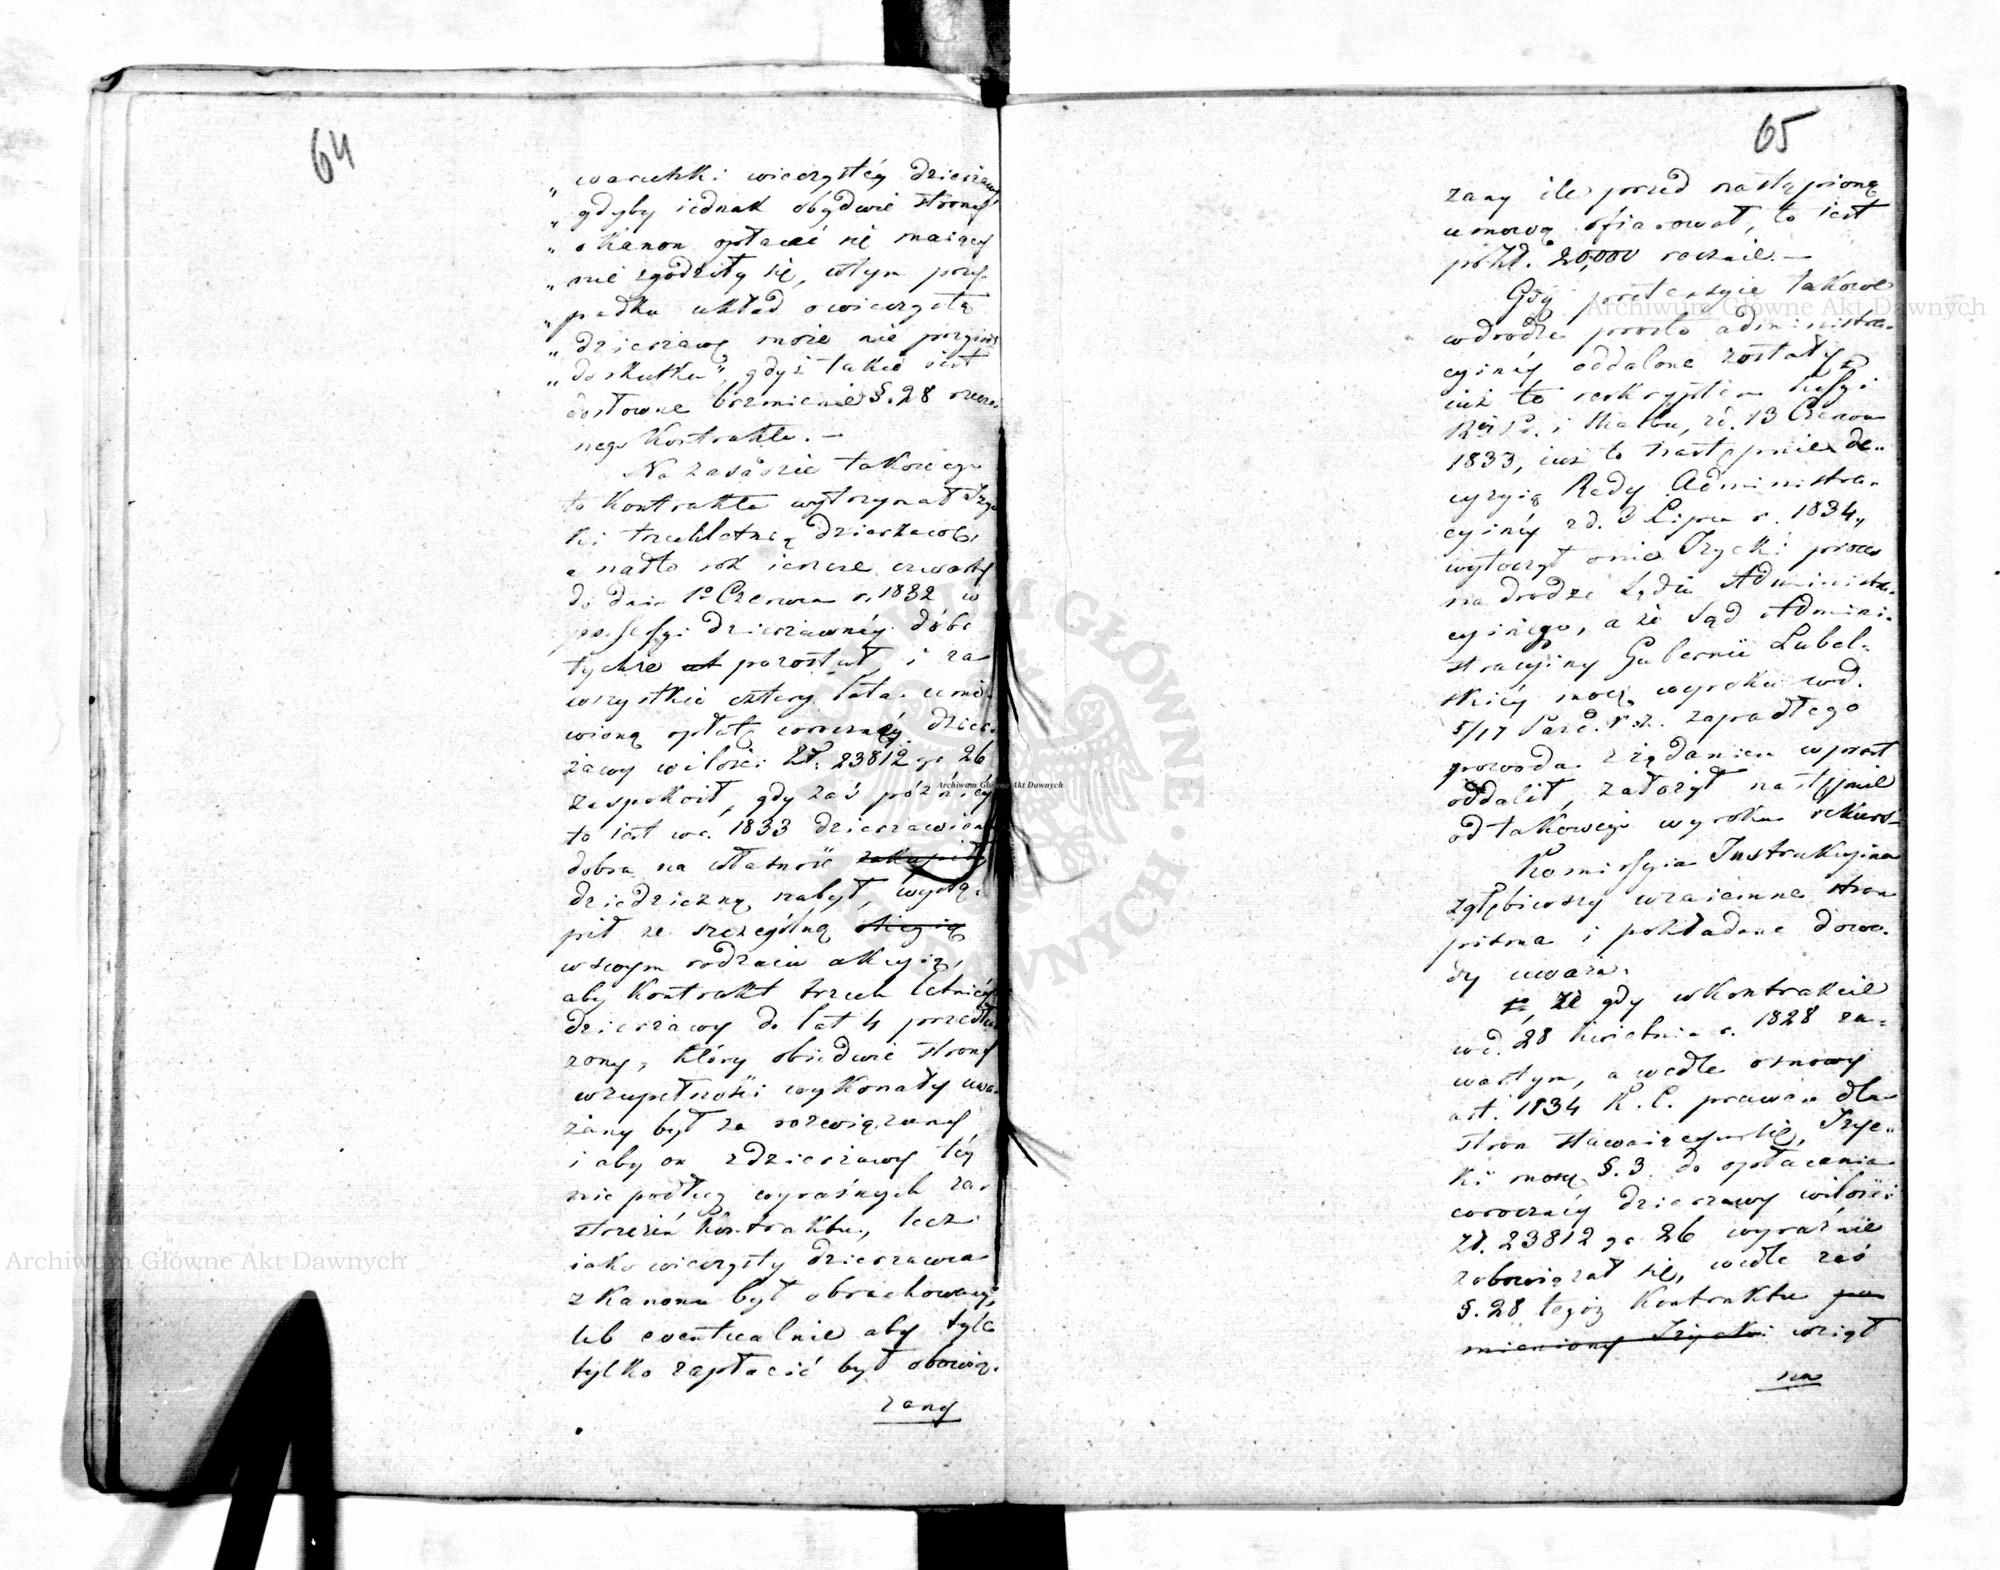 64
„ warunki wieczystéy dzierżawy
„ gdyby iednak obydwie strony
„ o Kanon opłacać się maiący
„ nie zgodziły się, wtym przy-
„ padku układ o wieczystą
„ dzierżawę może nie przyiść
„ do skutku", gdyż takie iest
dosłowne brzmienie §. 28 rzeczo-
nego Kontraktu. —
Na zasadzie takowego
to Kontraktu wytrzymał Irzyc
ki trzechletnią dzierżawę,
a nadto rok ieszcze czwarty
do dnia 1º Czerwca r. 1832 w
possessyi dzierżawnéy dóbr
tychże pozostał, i za
wszystkie cztery lata umó-
wioną opłatę coroczney dzier-
żawy w ilości Zł. 23812 gr 26
zaspokoił, gdy zaś późniéy
to iest w r. 1833 dzierżawione
dobra na własność zakupił
dziedziczną nabył, wystą-
pił ze szczególną
w swym rodzaiu akcyią,
aby Kontrakt trzech letniéy
dzierżawy do lat 4 przedłu
żony, który obiedwie strony
w zupełności wykonały uwa-
żany był za rozwiązany
i aby on z dzierżawy téy
nie podług wyraźnych za-
strzeżeń Kontraktu, lecz
iako wieczysty dzierżawca
z Kanonu był obrachowany,
lub eventualnie aby tyle
tylko zapłacić był obowią-
zany
65
zany ile przed nastąpioną
umową ofiarował, to iest
po Zł. 20,000 rocznie. —
Gdy pretensye takowe
w drodze prosto administra-
cyinéy oddalone zostały,
iuż to reskryptem
i Skarbu, z d. 13 Czerwca
1833, iuż to następnie de-
cyzyią Rady Administra-
cyinéy z d. 3 Lipca r. 1834,
wytoczył o nie Irzycki proces
na drodze Sądu Administra-
cyinego, a że Sąd Admini-
stracyiny Gubernii Lubel-
skiéy mocą wyroku w d.
5/17 Paźd. r. z. zapadłego
powoda z żądaniem wprost
oddalił, założył następnie
od takowego wyroku rekurs
Kommissyia Instrukcyina
zgłębiwszy wzaiemne stron
pisma i pokładane dowo-
dy uważa.
1º, że gdy w Kontrakcie
w d. 28 Kwietnia r. 1828 za-
wartym, a wedle osnowy
art. 1134 K. C. prawem dla
stron stawaiącym się, Irzyc-
ki mocą §. 3. do opłacania
coroczney dzierżawy w ilości
Zł. 23812 gr 26 wyraźnie
zobowiązał się, wedle zaś
§. 28 tegoż Kontraktu
mieniony Irzycki wziął
na
Archiwum Główne Akt Dawnych
Archiwum Główne Akt Dawnych
Archiwum Główne Akt Dawnych